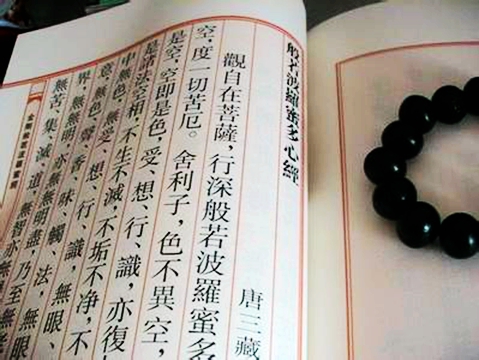 般若波羅蜜多心經
唐三藏
觀自在菩薩，行深般若波羅蜜多
空，度一切苦厄。舍利子，色不異空，
是空，空即是色，受、想、行、識，亦復
是諸法空相，不生不滅，不垢不净，不
中無色，無受、想、行、識，無眼、
意，無色、聲、香、味、觸、法，無眼
界，無無明，亦無無明盡，乃至無
無苦、集、滅、道，無智亦無